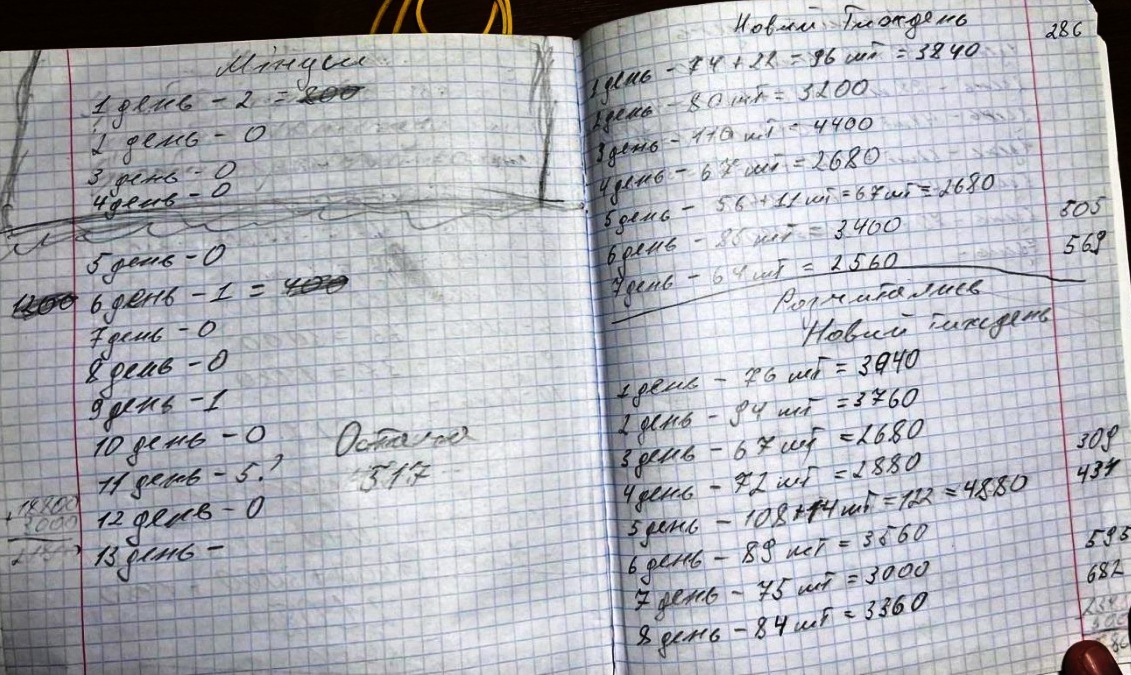 Мінуси
1 день - 2 = 800
2 день - 0
3 день - 0
4 день - 0
5 день - 0
1200 6 день - 1 = 400
7 день - 0
8 день - 0
9 день - 1
10 день - 0
11 день - 5?
12 день - 0
13 день -
517
Новий Тиждень
286
1 день - 74 + 22 = 96 шт = 3840
2 день - 80 шт = 3200
3 день - 110 шт = 4400
4 день - 67 шт = 2680
5 день - 56 + 11 шт = 67 шт = 2680
505
6 день - 85 шт = 3400
569
7 день - 64 шт = 2560
Новий тиждень
1 день - 76 шт = 3040
2 день - 94 шт = 3760
3 день - 67 шт = 2680
309
4 день - 72 шт = 2880
5 день - 108 + 14 шт = 122 = 4880
6 день - 89 шт = 3560
595
7 день - 75 шт = 3000
682
8 день - 84 шт = 3360